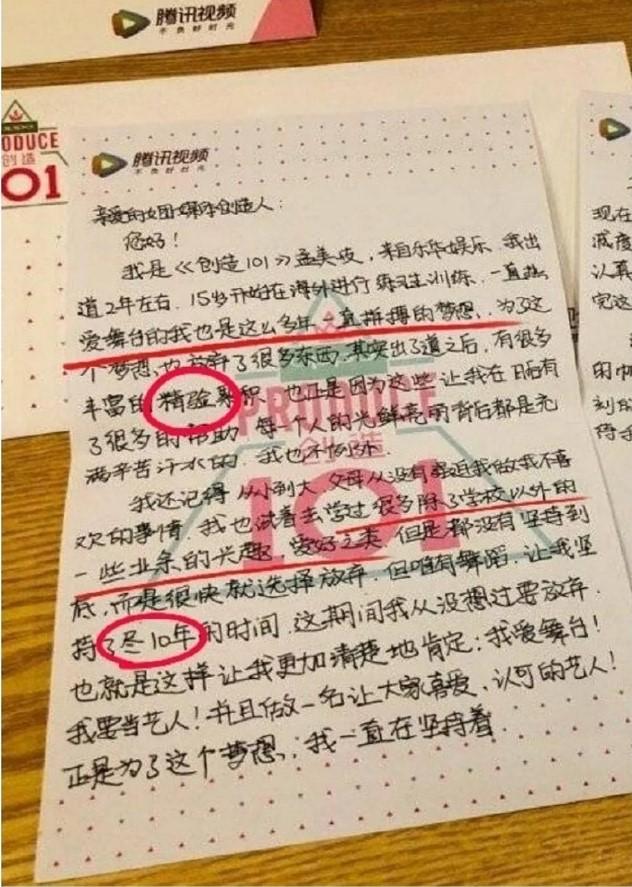 腾讯视频
不负好时光
ODUCE
创造
01
腾讯视频
不负好时光
亲爱的女团媒体创造人：
您好！
我是《创造101》孟美岐，来自乐华娱乐. 我出
道2年左右. 15岁开始在海外进行练习生训练. 一直热
爱舞台的我也是这么多年一直拼搏的梦想. 为了这
个梦想也放弃了很多东西. 其实出了道之后，有很多
丰富的精验累积. 也正是因为这些让我在日后有
了很多的帮助. 每个人的光鲜亮丽背后都是充
满辛苦汗水的. 我也不例外.
我还记得从小到大 父母从没有强迫我做我不喜
欢的事情. 我也试着去学过很多除了学校以外的
一些业余的兴趣，爱好之类. 但是都没有坚持到
底，而是很快就选择放弃. 但唯有舞蹈. 让我坚
持了尽10年的时间. 这期间我从没想过要放弃.
也就是这样让我更加清楚地肯定：我爱舞台！
我要当艺人！并且做一名让大家喜爱、认可的艺人！
正是为了这个梦想，我一直在坚持着
PRODUCE
创造
101
现在
减度
认真
完这
刻的